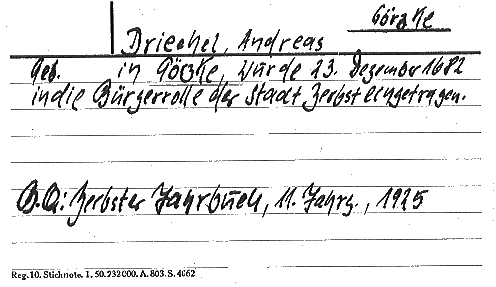 Görzke
Driechel, Andreas
Geb. in Görzke, wurde 23. Dezember 1682
in die Bürgerrolle der Stadt Zerbst eingetragen.
B.Q.: Zerbster Jahrbuch, 11. Jahrg., 1925
Reg. 10. Stichnote. 1. 50. 732000. A. 803. S. 4062